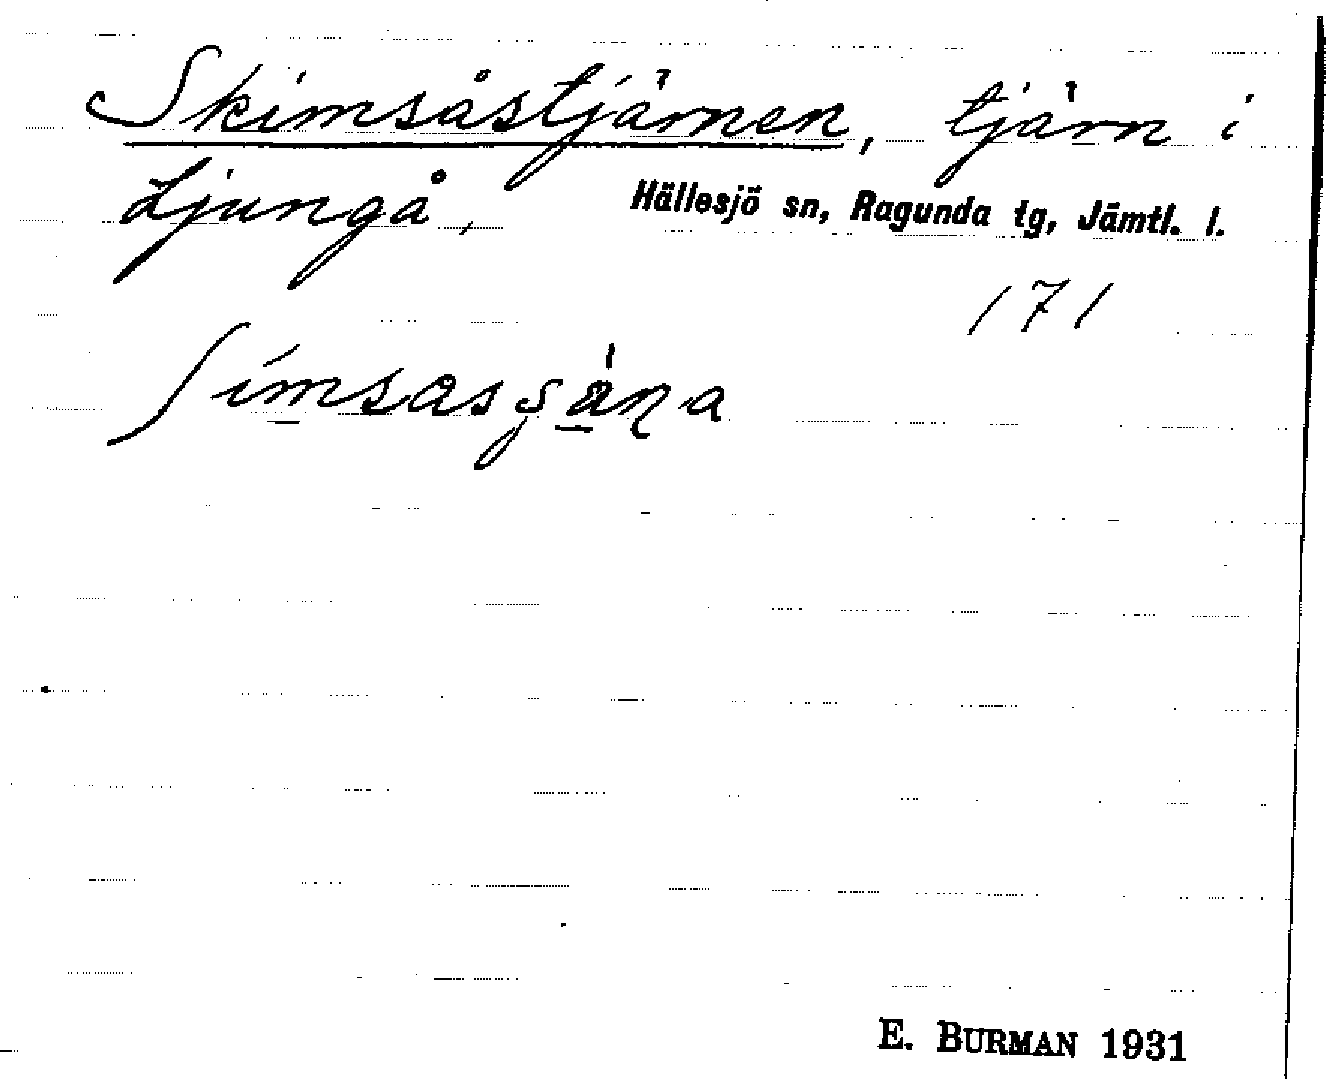 Skimsåstjärnen, tjärn i
Ljungå, Hällesjö sn, Ragunda tg, Jämtl. l.
171
E. BURMAN 1931